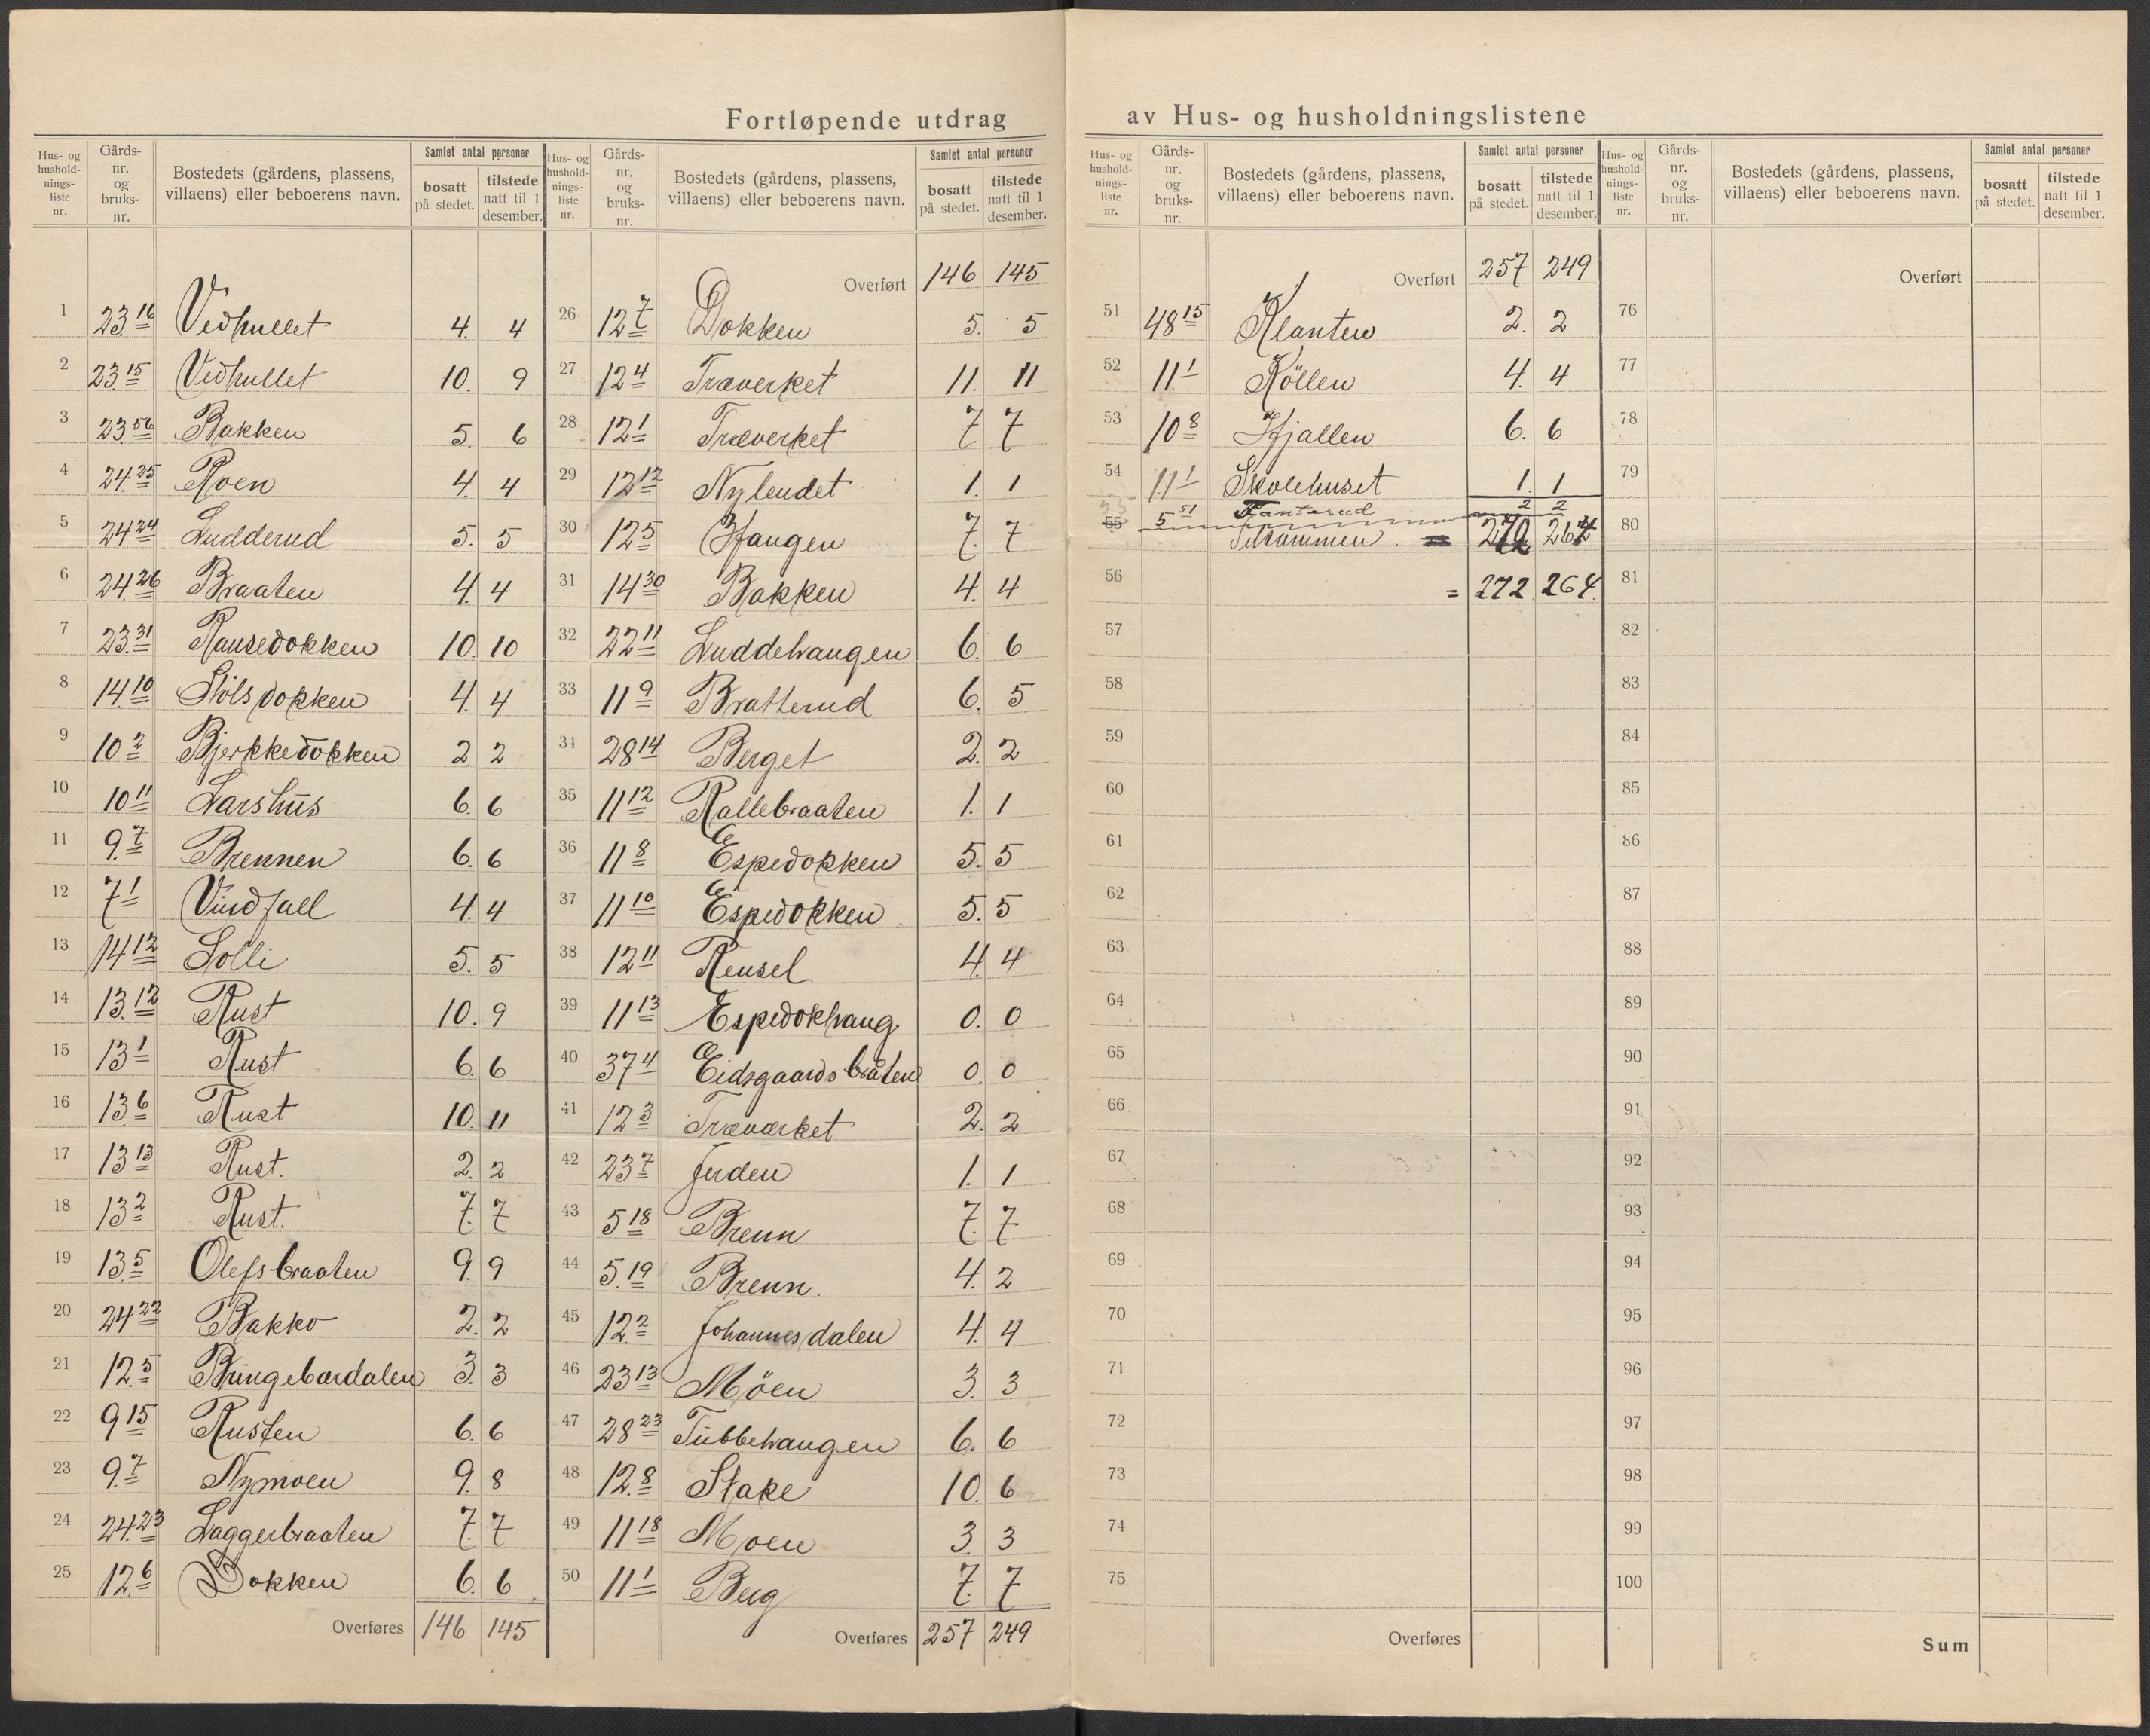 Fortløpende utdrag av Hus- og husholdningslistene
Hus- og hushold- nings- liste nr. | Gårds- nr. og bruks- nr. | Bostedets (gårdens, plassens, villaens) eller beboerens navn. | Samlet antal personer | bosatt på stedet. | tilstede natt til 1 desember.
1 23.16 Vedhullet 4. 4
2 23.15 Vedhullet 10. 9
3 23.56 Bakken 5. 6
4 24.25 Roen 4. 4
5 24.24 Ludderud 5. 5
6 24.26 Braaten 4. 4
7 23.31 Ransedokken 10. 10
8 14.10 Stölsdokken 4. 4
9 10 2 Bjerkkedokken 2. 2
10 10 11 Larshus 6. 6
11 9.7 Brennen 6. 6
12 7 1 Vindfall 4. 4
13 14 12 Solli 5. 5
14 13.12 Rust 10. 9
15 13 1 Rust 6. 6
16 13.6 Rust 10. 11
17 13 13 Rust. 2. 2
18 13 2 Rust. 7. 7
19 13.5 Olefsbraaten 9. 9
20 24 22 Bakko 2. 2
21 12.5 Bringebærdalen 3. 3
22 9 15 Rusten 6. 6
23 9.7 Nymoen 9. 8
24 24.23 Laggerbraaten 7. 7
25 12.6 Dokken 6. 6
Overføres 146 145
Hus- og hushold- nings- liste nr. | Gårds- nr. og bruks- nr. | Bostedets (gårdens, plassens, villaens) eller beboerens navn. | Samlet antal personer | bosatt på stedet. | tilstede natt til 1 desember.
Overført 146 145
26 12 7 Dokken 5. 5
27 12 4 Træverket 11. 11
28 12 1 Træverket 7. 7
29 12 12 Nylendet 1. 1
30 12 5 Haugen 7. 7
31 14 30 Bakken 4. 4
32 22 11 Luddehaugen 6. 6
33 11 9 Bratterud 6. 5
34 28 14 Berget 2. 2
35 11 12 Rallebraaten 1. 1
36 11 8 Espedokken 5. 5
37 11 10 Espedokken 5. 5
38 12 11 Rensel 4. 4
39 11 13 Espedokhaug 0. 0
40 37 4 Eidsgaardsbråten 0. 0
41 12 3 Træværket 2. 2
42 23 7 Jorden 1. 1
43 5 18 Brenn 7. 7
44 5.19 Brenn. 4. 2
45 12.2 Johannesdalen 4. 4
46 23 13 Möen 3. 3
47 28 23 Tubbehaugen 6. 6
48 12.8 Stake 10. 6
49 11 18 Moen 3. 3
50 11 1 Berg 7. 7
Overføres 257 249
Hus- og hushold- nings- liste nr. | Gårds- nr. og bruks- nr. | Bostedets (gårdens, plassens, villaens) eller beboerens navn. | Samlet antal personer | bosatt på stedet. | tilstede natt til 1 desember.
Overført 257 249
51 48 15 Klanten 2. 2
52 11 1 Köllen 4. 4
53 10 8 Hjallen 6. 6
54 11 1 Skolehuset 1. 1
55 5 51 Fanterud 2 2
Tilsammen = 270 262
56 = 272 264
57
58
59
60
61
62
63
64
65
66
67
68
69
70
71
72
73
74
75
Overføres
Hus- og hushold- nings- liste nr. | Gårds- nr. og bruks- nr. | Bostedets (gårdens, plassens, villaens) eller beboerens navn. | Samlet antal personer | bosatt på stedet. | tilstede natt til 1 desember.
Overført
76
77
78
79
80
81
82
83
84
85
86
87
88
89
90
91
92
93
94
95
96
97
98
99
100
Sum